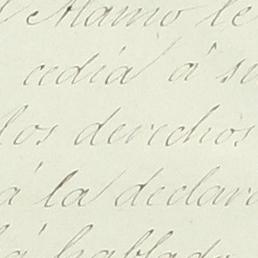 Alamo le
cedía á su
los derechos
á la declara
há hablado